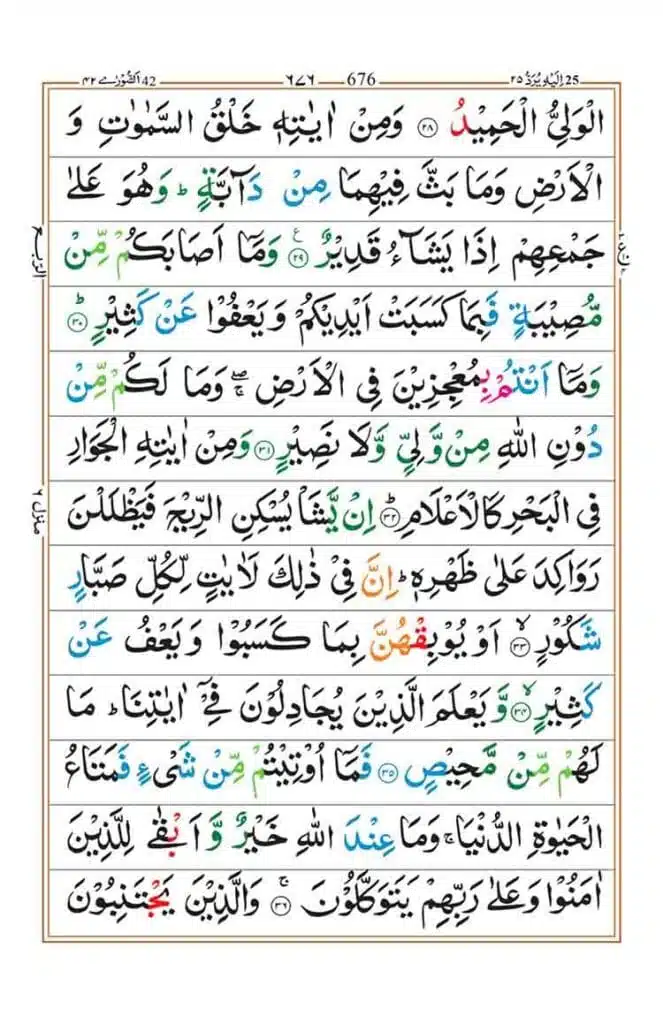 25 اِلَيْهِ يُرَدُّ ٢٥ 676 ٦٧٦ 42 اَلشُّوْرٰے ٤٢
الْوَلِىُّ الْحَمِيْدُ ۝٢٨ وَمِنْ اٰيٰتِهٖ خَلْقُ السَّمٰوٰتِ وَ
الْاَرْضِ وَمَا بَثَّ فِيْهِمَا مِنْ دَآبَّةٍ ؕ وَهُوَ عَلٰى
جَمْعِهِمْ اِذَا يَشَآءُ قَدِيْرٌ ۝٢٩ وَمَاۤ اَصَابَكُمْ مِّنْ
مُّصِيْبَةٍ فَبِمَا كَسَبَتْ اَيْدِيْكُمْ وَيَعْفُوْا عَنْ كَثِيْرٍ ؕ۝٣٠
وَمَاۤ اَنْتُمْ بِمُعْجِزِيْنَ فِى الْاَرْضِ ۖۚ وَمَا لَكُمْ مِّنْ
دُوْنِ اللّٰهِ مِنْ وَّلِىٍّ وَّلَا نَصِيْرٍ ۝٣١ وَمِنْ اٰيٰتِهِ الْجَوَارِ
فِى الْبَحْرِ كَالْاَعْلَامِ ؕ۝٣٢ اِنْ يَّشَاْ يُسْكِنِ الرِّيْحَ فَيَظْلَلْنَ
رَوَاكِدَ عَلٰى ظَهْرِهٖ ؕ اِنَّ فِىْ ذٰلِكَ لَاٰيٰتٍ لِّكُلِّ صَبَّارٍ
شَكُوْرٍ ۙ۝٣٣ اَوْ يُوْبِقْهُنَّ بِمَا كَسَبُوْا وَيَعْفُ عَنْ
كَثِيْرٍ ۙ۝٣٤ وَّيَعْلَمَ الَّذِيْنَ يُجَادِلُوْنَ فِىْۤ اٰيٰتِنَا ؕ مَا
لَهُمْ مِّنْ مَّحِيْصٍ ۝٣٥ فَمَاۤ اُوْتِيْتُمْ مِّنْ شَىْءٍ فَمَتَاعُ
الْحَيٰوةِ الدُّنْيَا ۚ وَمَا عِنْدَ اللّٰهِ خَيْرٌ وَّاَبْقٰى لِلَّذِيْنَ
اٰمَنُوْا وَعَلٰى رَبِّهِمْ يَتَوَكَّلُوْنَ ۚ۝٣٦ وَالَّذِيْنَ يَجْتَنِبُوْنَ
الربع
منزل ٦